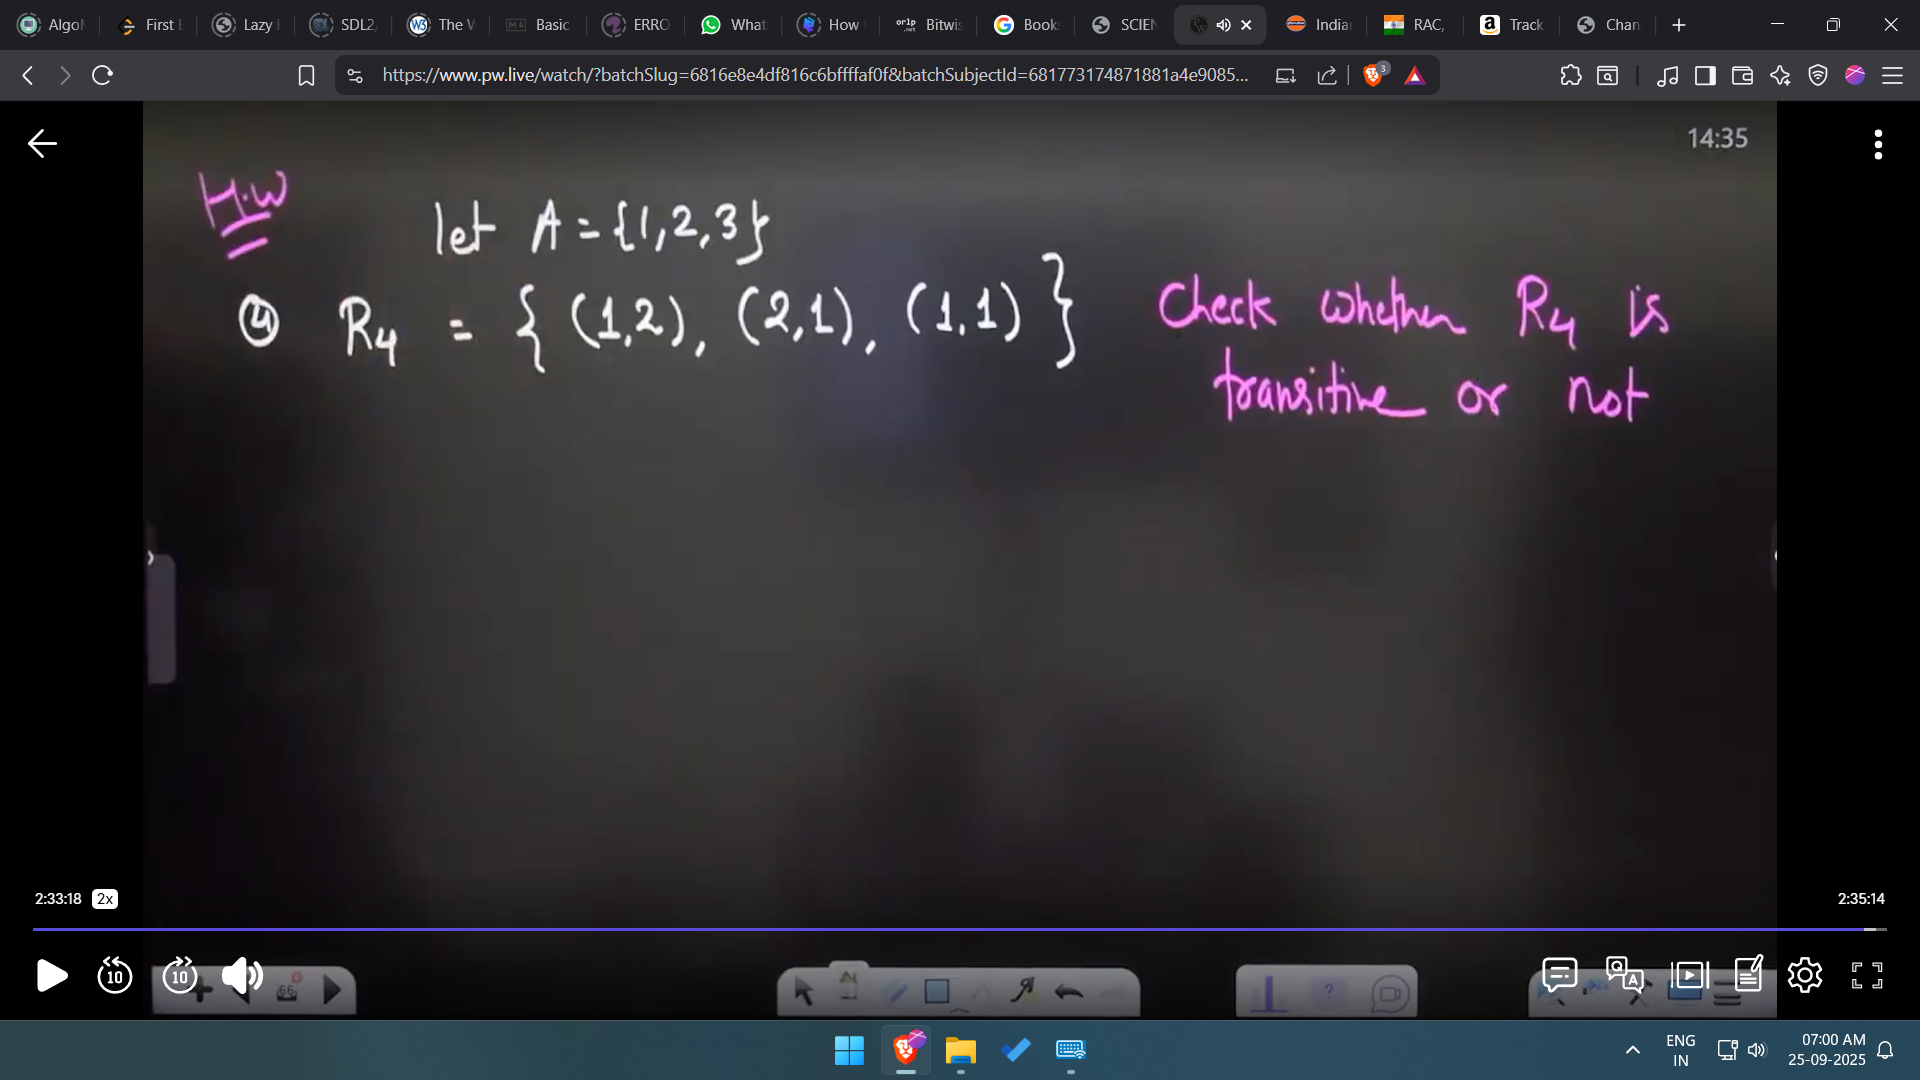 Algo
First E
Lazy
SDL2,
The V
Basic
ERRO
What
How
orlp .net Bitwis
Book
SCIEN
India
RAC,
Track
Chan
https://www.pw.live/watch/?batchSlug=6816e8e4df816c6bffffaf0f&batchSubjectId=681773174871881a4e9085...
3
14:35
H.W
let A = {1,2,3}
④ R4 = { (1,2), (2,1), (1,1) } Check whether R4 is
transitive or not
2:33:18 2x 2:35:14
10 10
66
?
ENG 07:00 AM
IN 25-09-2025